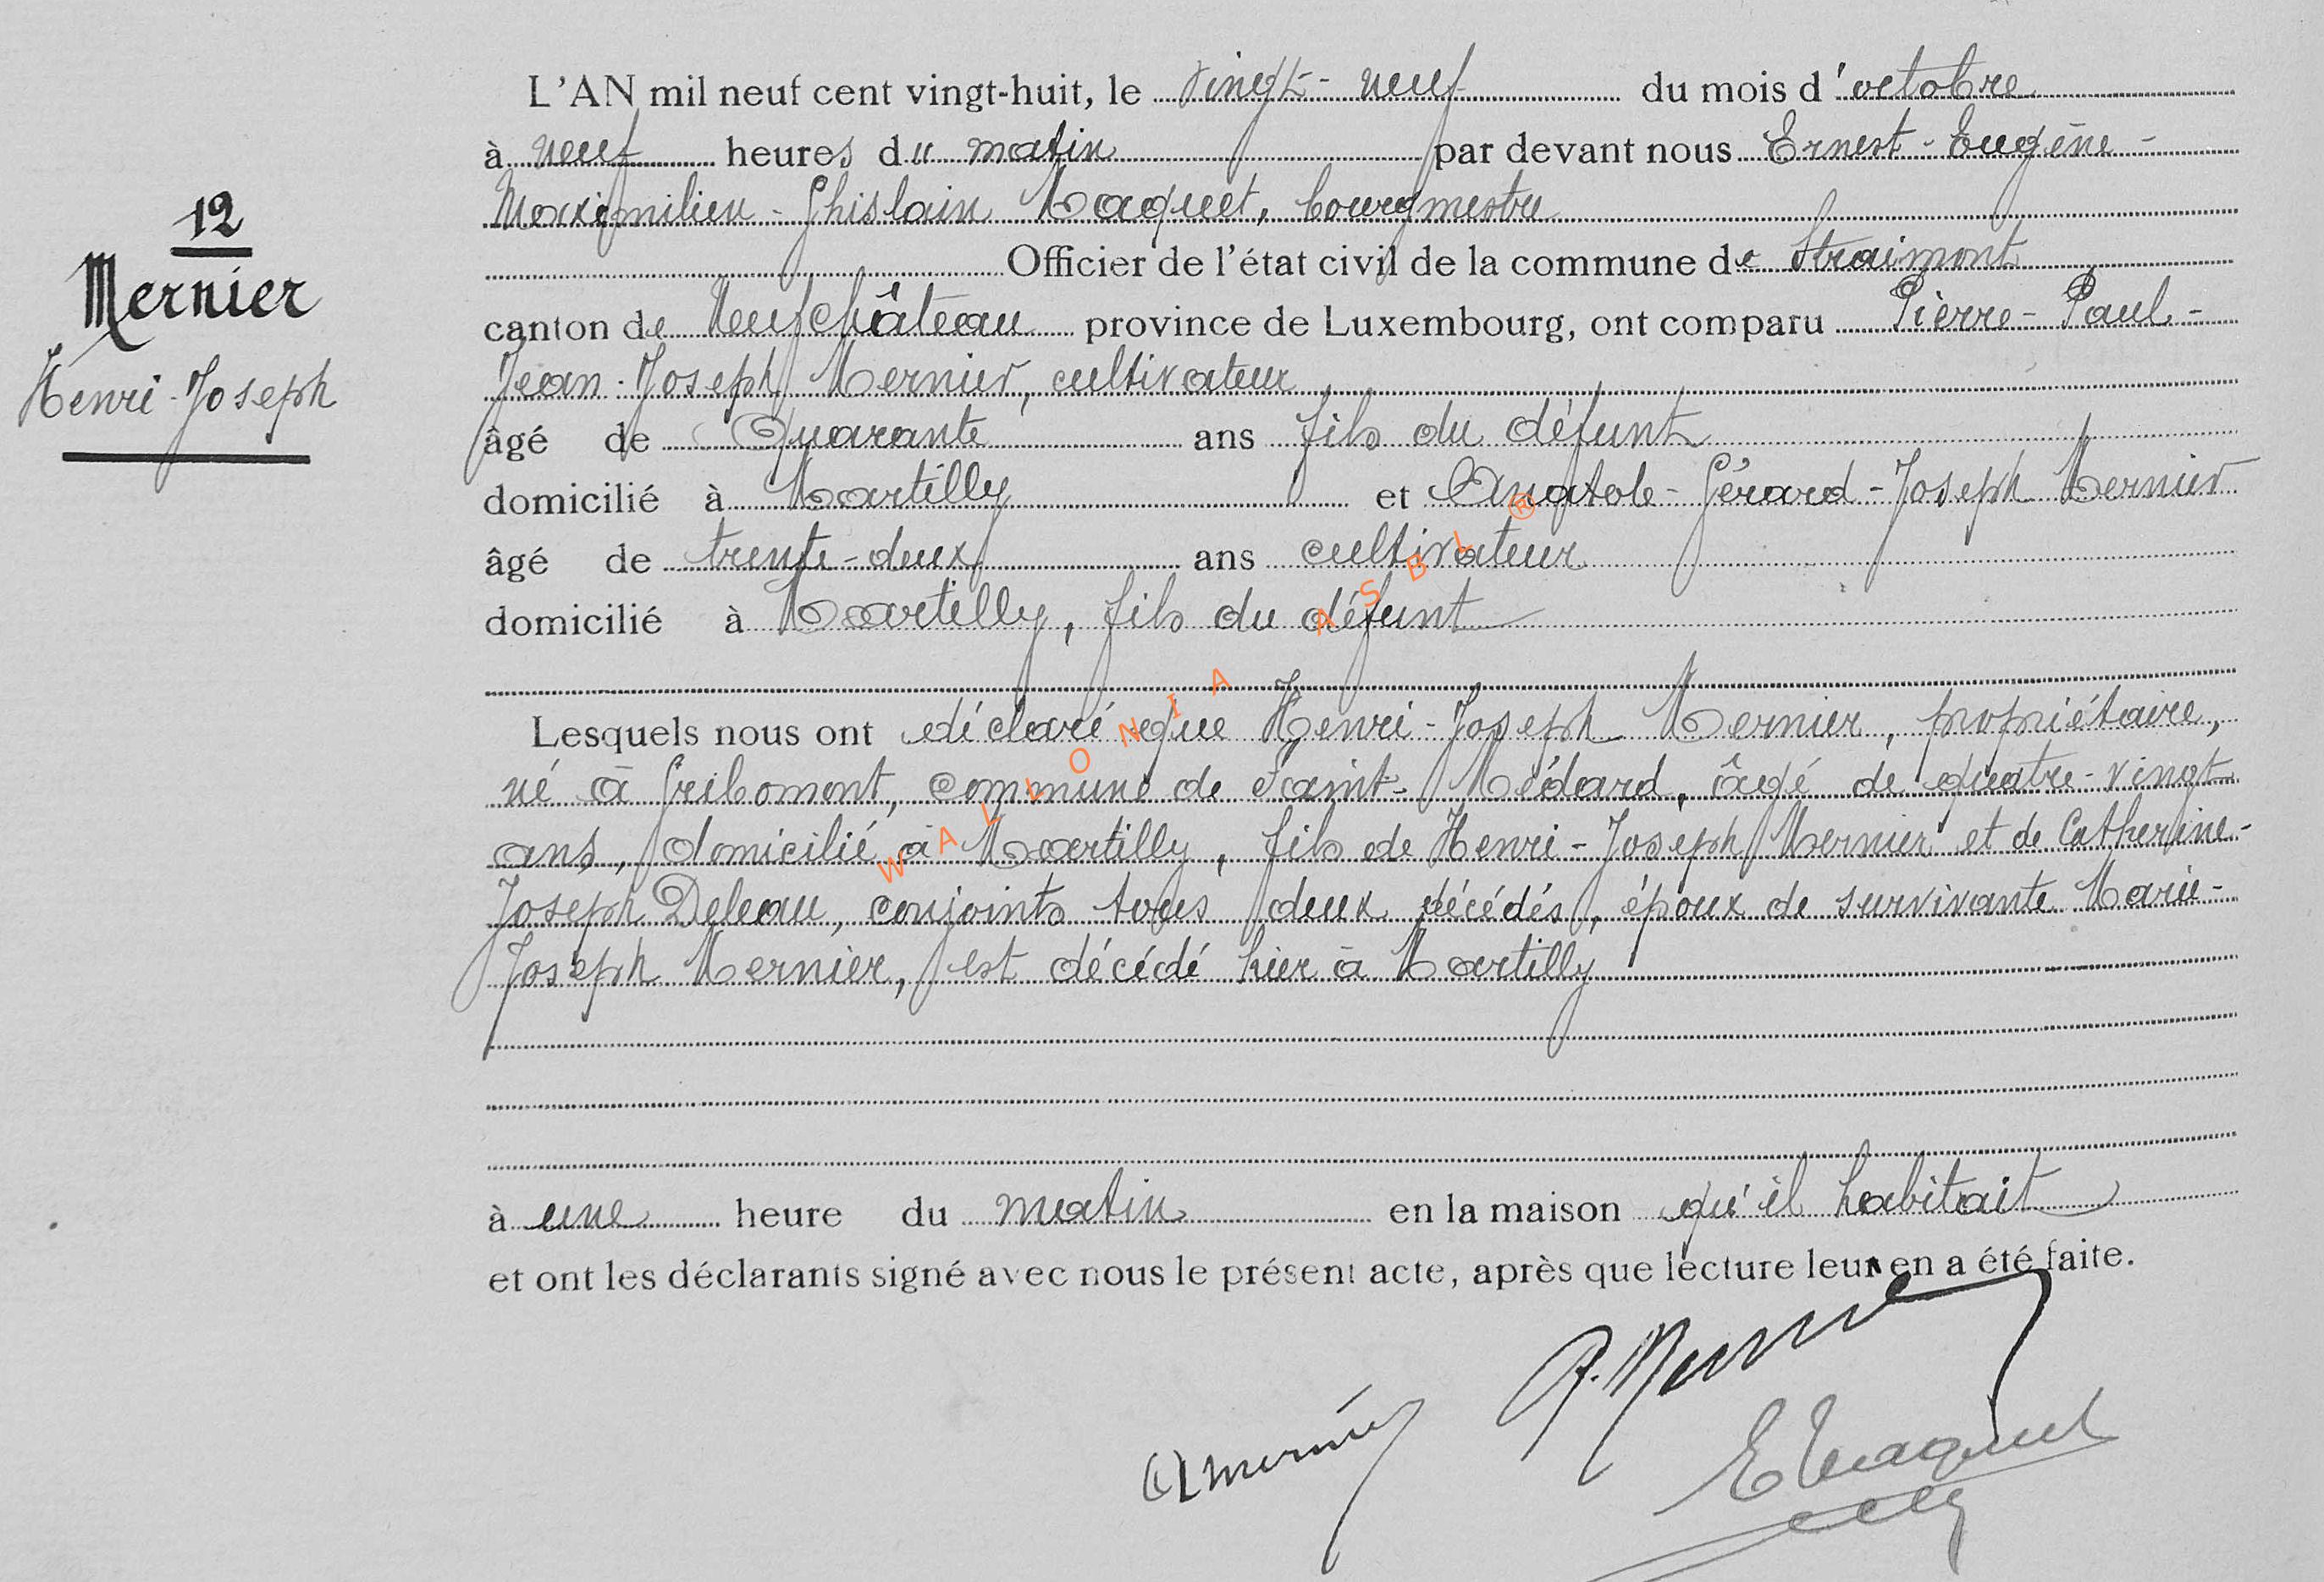 12
Mernier
Henri-Joseph
L'AN mil neuf cent vingt-huit, le vingt-neuf du mois d'octobre
à neuf heures du matin par devant nous Ernest-Eugène-
Maximilien-Ghislain Maquet, bourgmestre
Officier de l'état civil de la commune de Straimont
canton de Neufchâteau province de Luxembourg, ont comparu Pierre-Paul-
Jean-Joseph Mernier, cultivateur
âgé de Quarante ans fils du défunt
domicilié à Martilly et Anatole-Gérard-Joseph Mernier
âgé de trente-deux ans cultivateur
domicilié à Martilly, fils du défunt
Lesquels nous ont déclaré que Henri-Joseph Mernier, propriétaire,
né à Gribomont, commune de Saint-Médard, âgé de quatre-vingt
ans, domicilié à Martilly, fils de Henri-Joseph Mernier et de Catherine-
Joseph Deleau, conjoints tous deux décédés, époux de survivante Marie-
Joseph Mernier, est décédé hier à Martilly
à une heure du matin en la maison qu'il habitait
et ont les déclarants signé avec nous le présent acte, après que lecture leur en a été faite.
P. Mernier
A Mernier
E Maquet
WALLONIA ASBL ®